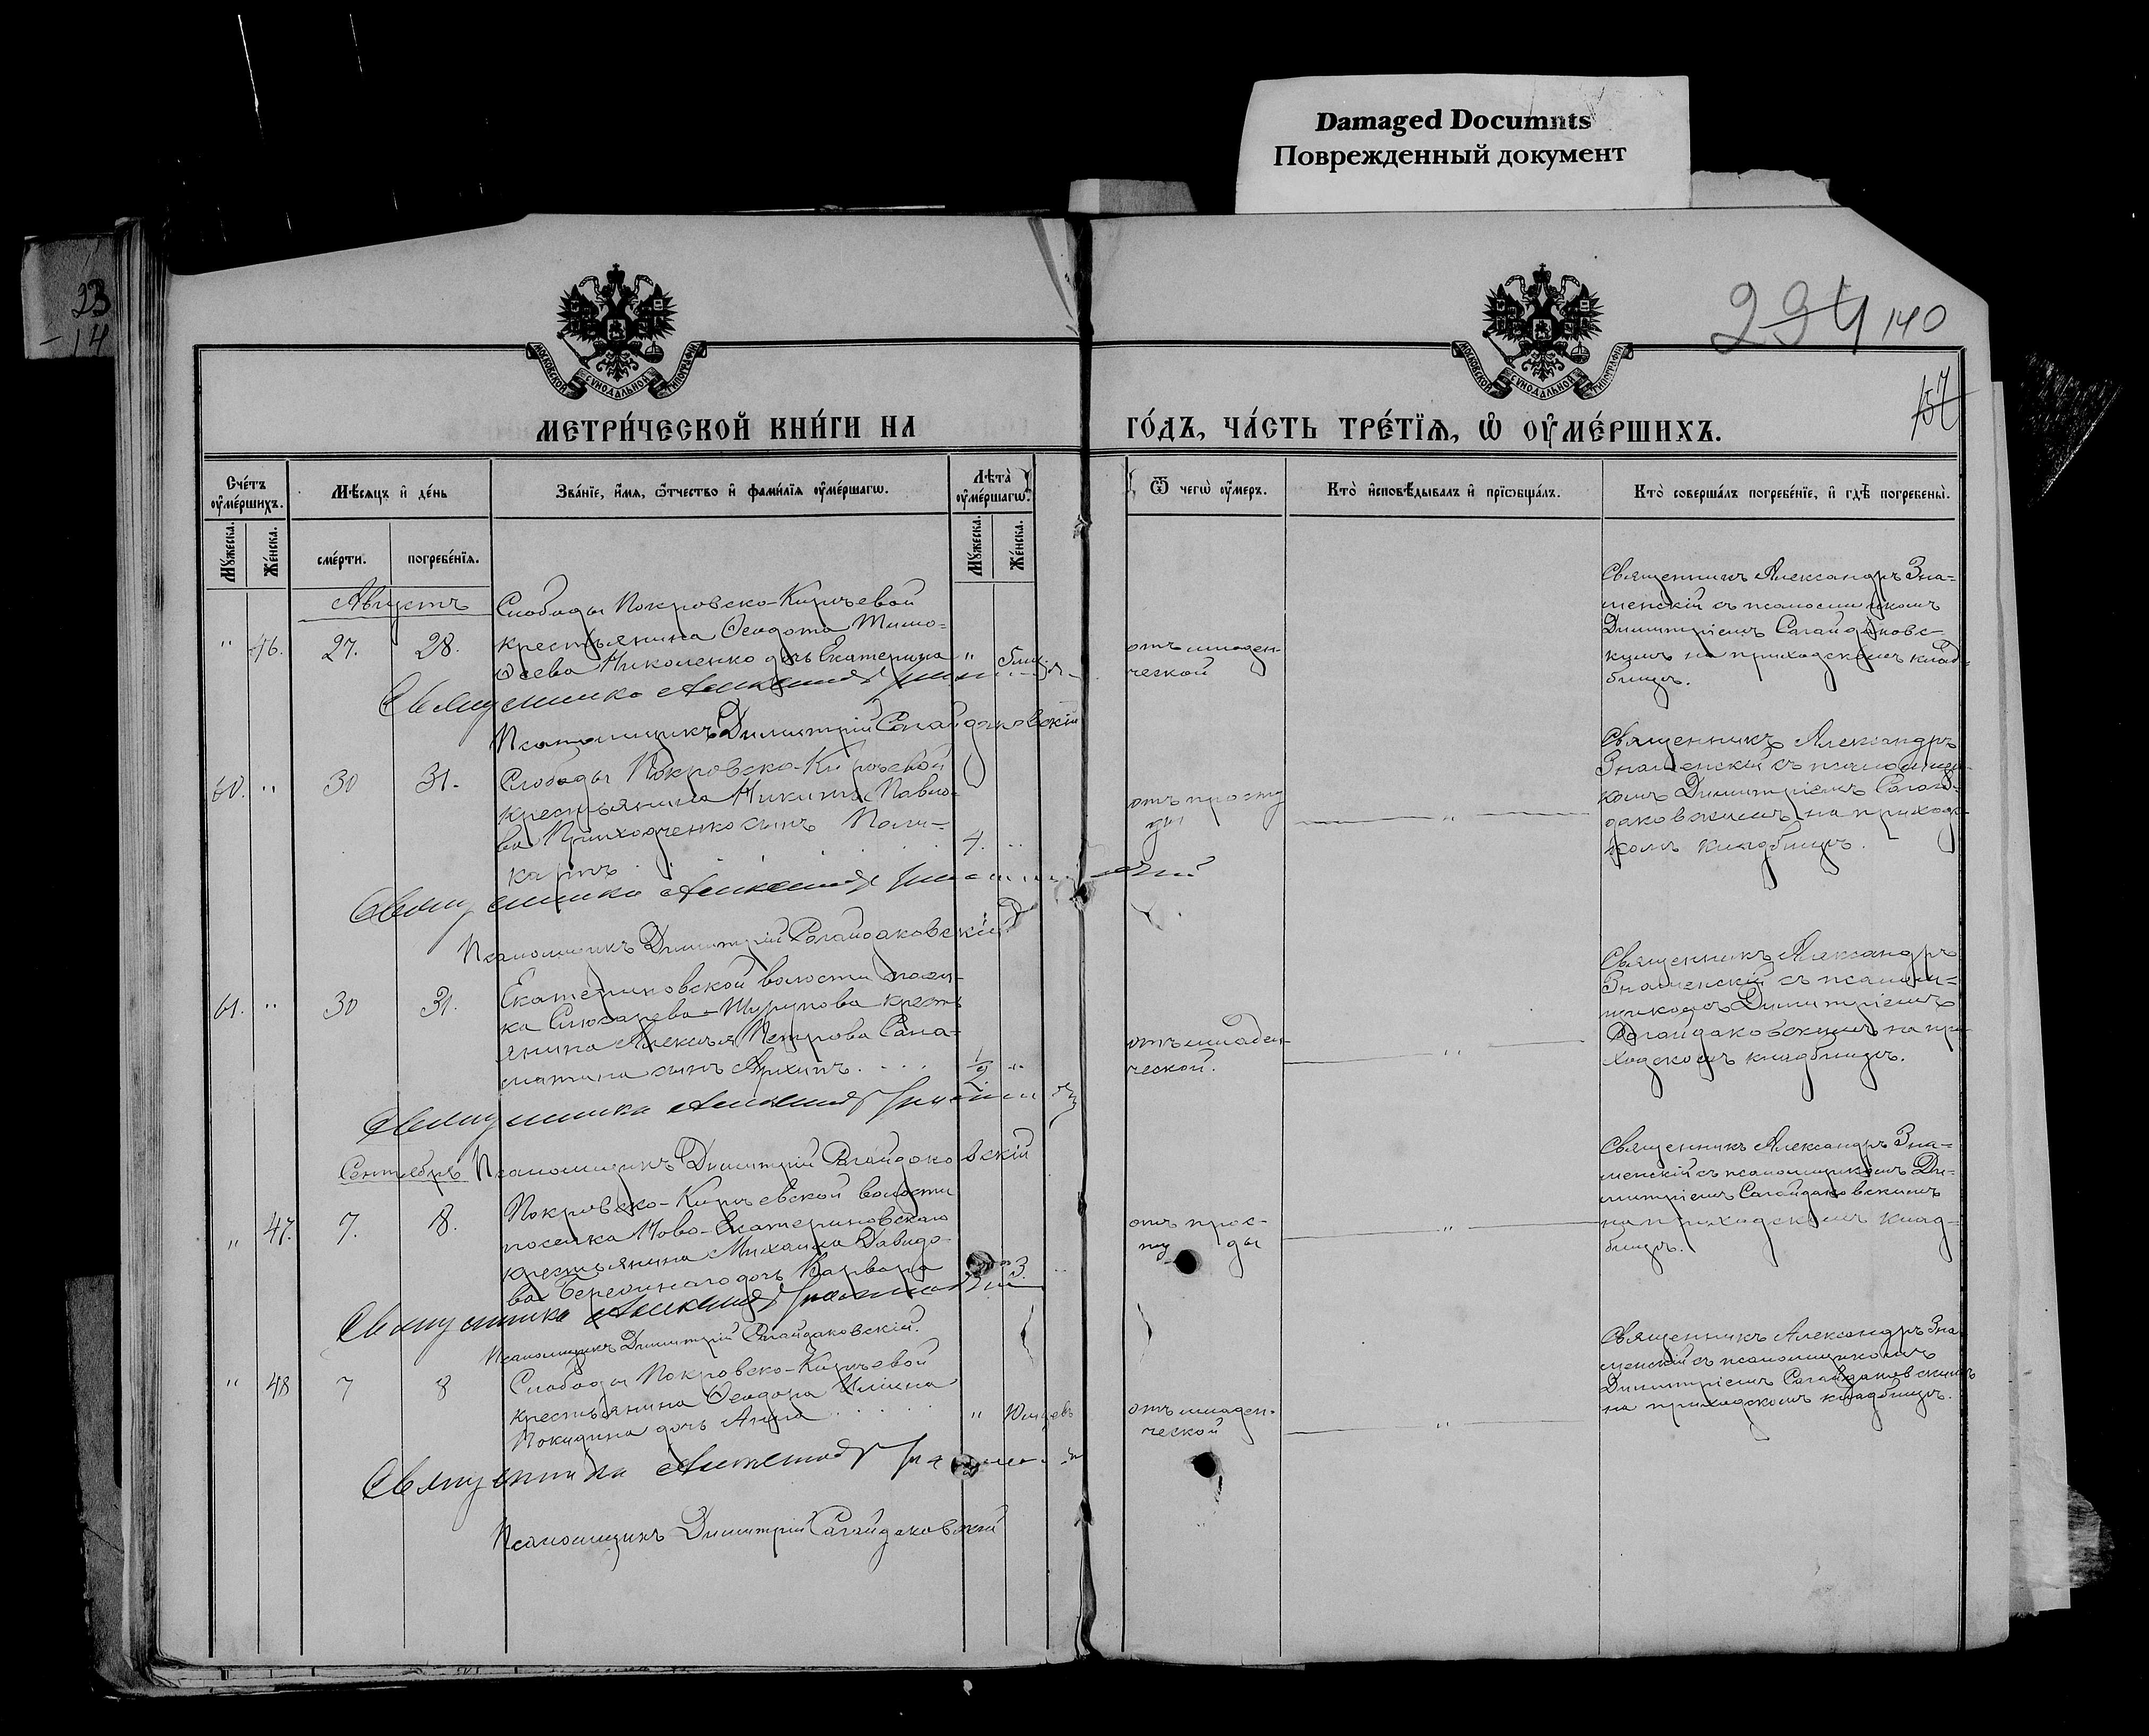 Damaged Documnts
Поврежденный документ
23
-14
294 140
157
МОСКОВСКОЙ СУНОДАЛЬНОЙ ТИПОГРАФІИ
МОСКОВСКОЙ СУНОДАЛЬНОЙ ТИПОГРАФІИ
МЕТРИ́ЧЕСКОЙ КНИ́ГИ НА ГО́ДЪ, ЧА́СТЬ ТРЕ́ТІѦ, Ѡ ОУ҆МЕ́РШИХЪ.
Сче́тъ оу҆ме́ршихъ.
Мѣ́сяцъ и҆ де́нь
Зва́нїе, и҆́мя, ѻ҆́тчество и҆ фами́лїя оу҆ме́ршагѡ.
Лѣ̀та оу҆ме́ршагѡ.
Ѿ чегѡ̀ оу҆́меръ.
Кто̀ и҆сповѣ́дывалъ и҆ прїѡбща́лъ.
Кто̀ соверша́лъ погребе́нїе, и҆ гдѣ̀ погребены̀.
Мꙋ́жеска.
Же́нска.
сме́рти.
погребе́нїя.
Мꙋ́жеска.
Же́нска.
Августъ
Слободы Покровско-Кирѣевой
" 46. 27. 28. крестьянина Ѳеодота Тимо-
ѳеева Николенко дочь Екатерина "
отъ младен-
ческой
Священникъ Александръ Зна-
менскій съ псаломщикомъ
Димитріемъ Сагайдаковс-
кимъ на приходскомъ клад-
бищѣ.
Священникъ Александръ
Псаломщикъ Димитрій Сагайдаковскій
60. " 30 31. Слободы Покровско-Кирѣевой
крестьянина Никиты Павло-
ва Приходченко сынъ Поли-
карпъ 4. "
отъ просту
ды
"
Священникъ Александръ
Знаменскій съ псаломщи-
комъ Димитріемъ Сагай-
даковскимъ на приходс-
комъ кладбищѣ.
Священникъ Александръ
Псаломщикъ Димитрій Сагайдаковскій
61. " 30 31. Екатериновской волости посел-
ка Слюсарева-Шурупова кресть
янина Алексѣя Петрова Сала-
матина сынъ Архипъ. 1/2 "
отъ младен-
ческой.
"
Священникъ Александръ
Знаменскій съ псаломщ-
икомъ Димитріемъ
Сагайдаковскимъ на при-
ходскомъ кладбищѣ.
Священникъ Александръ
Сентябрь Псаломщикъ Димитрій Сагайдаковскій
" 47. 7. 8. Покровско-Кирѣевской волости
поселка Ново-Екатериновскаго
крестьянина Михаила Давидо-
ва дочь Варвара 3.
отъ прос-
ту ды
"
Священникъ Александръ Зна-
менскій съ псаломщикомъ Ди-
митріемъ Сагайдаковскимъ
на приходскомъ клад-
бищѣ.
Священникъ Александръ
Псаломщикъ Димитрій Сагайдаковскій.
" 48 7 8 Слободы Покровско-Кирѣевой
крестьянина Ѳеодора Иліина
Покидина дочь Анна "
отъ младен-
ческой
"
Священникъ Александръ Зна
менскій съ псаломщикомъ
Димитріемъ Сагайдаковскимъ
на приходскомъ кладбищѣ.
Священникъ Александръ
Псаломщикъ Димитрій Сагайдаковскій